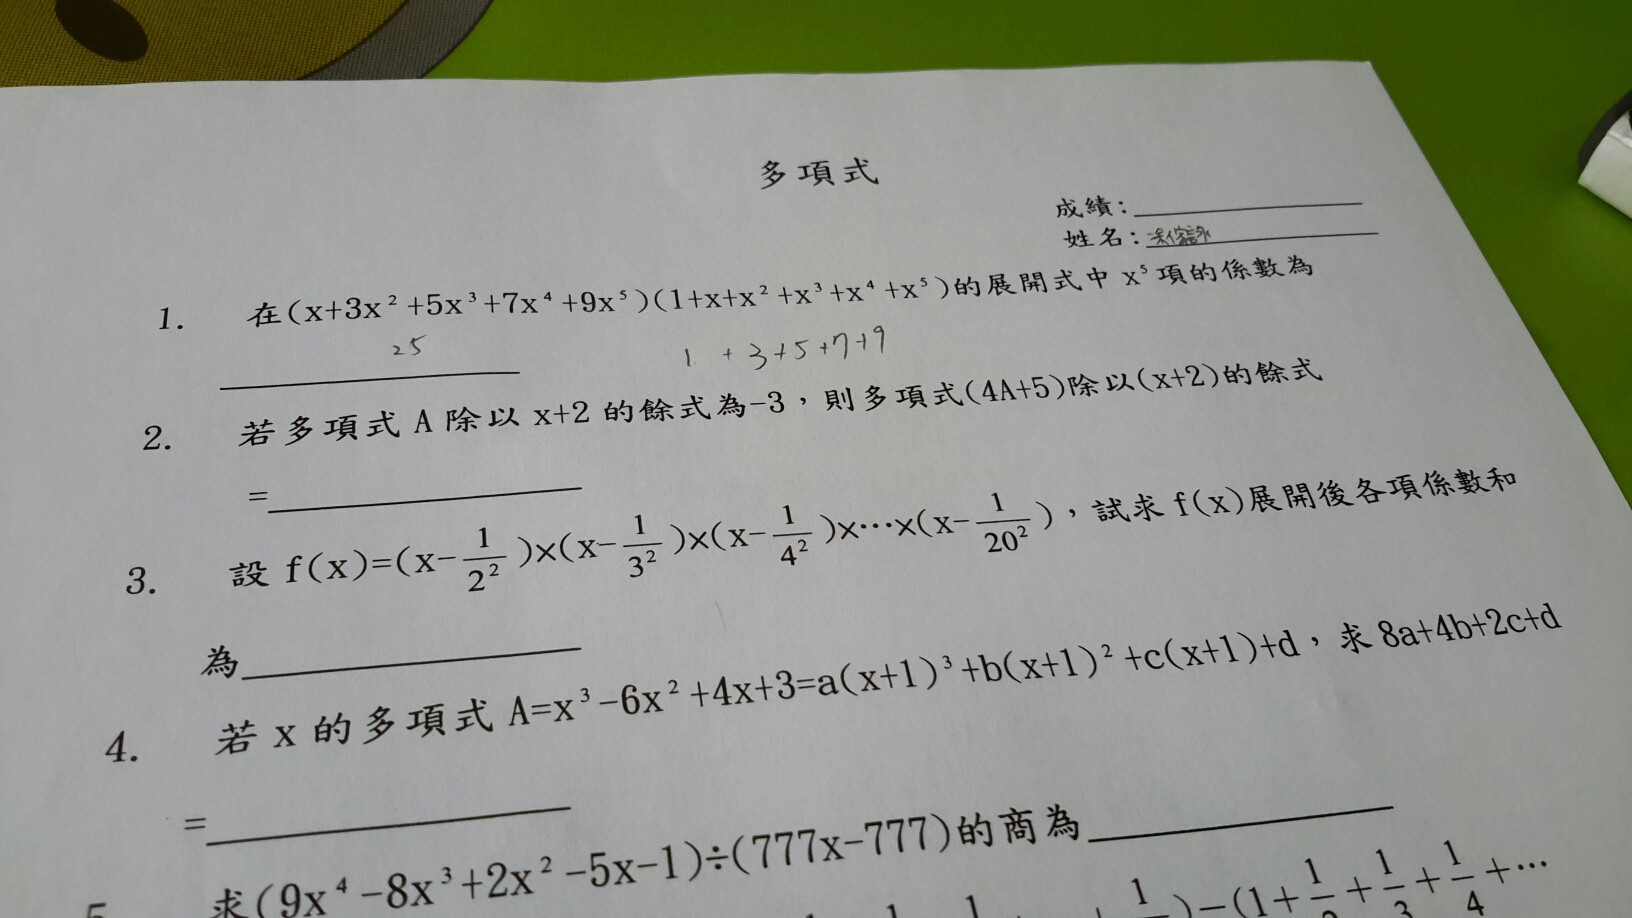 多項式
成績:
姓名:
1. 在(x+3x²+5x³+7x⁴+9x⁵)(1+x+x²+x³+x⁴+x⁵)的展開式中 x⁵項的係數為
25 1 +3+5+7+9
2. 若多項式 A 除以 x+2 的餘式為-3，則多項式(4A+5)除以(x+2)的餘式
=
3. 設 f(x)=(x-1/2²)×(x-1/3²)×(x-1/4²)×…×(x-1/20²)，試求 f(x)展開後各項係數和
為
4. 若 x 的多項式 A=x³-6x²+4x+3=a(x+1)³+b(x+1)²+c(x+1)+d，求 8a+4b+2c+d
=
求(9x⁴-8x³+2x²-5x-1)÷(777x-777)的商為
)-(1+1/2+1/3+1/4+…